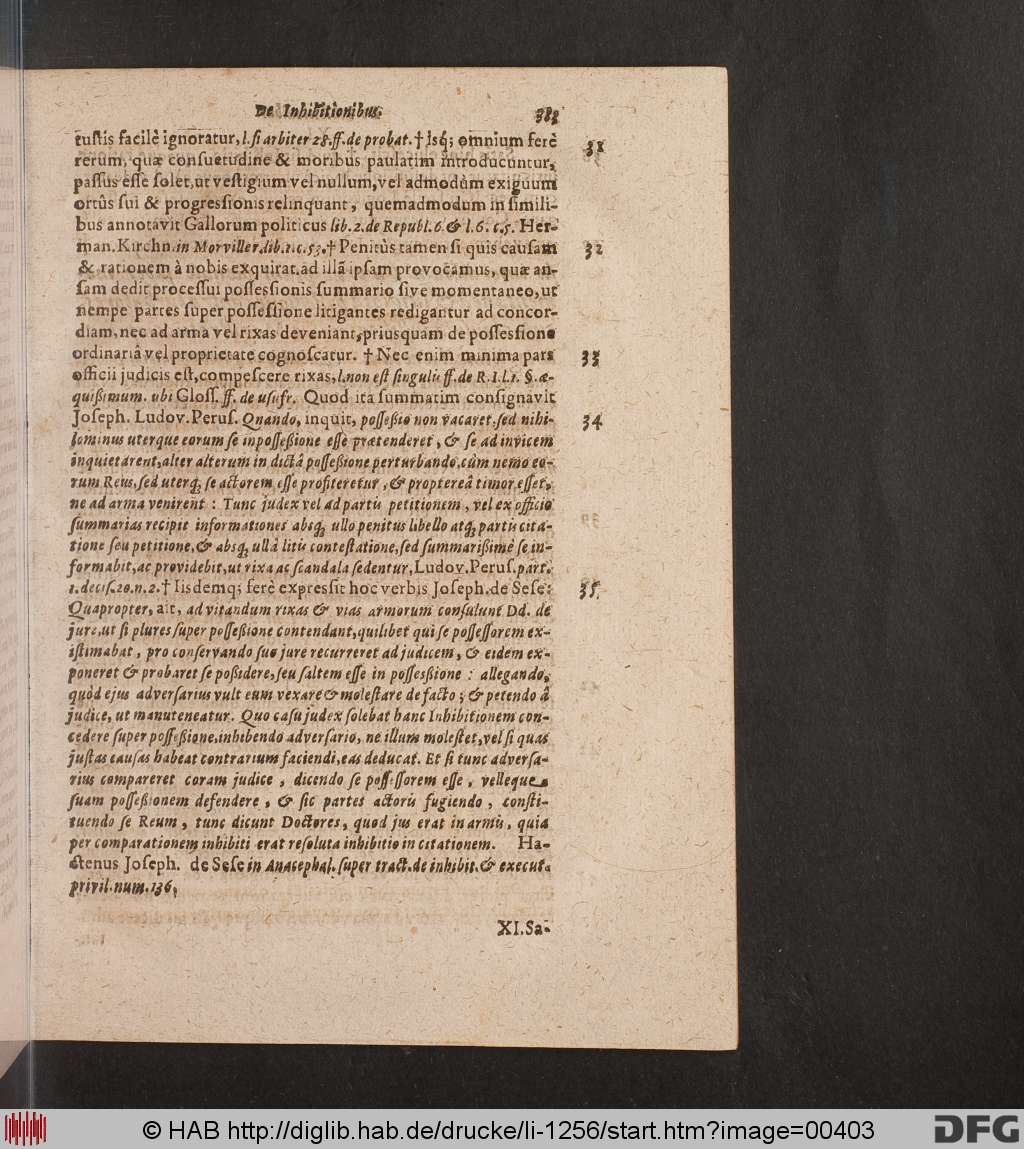 De Inhibitionibus. 383
tustis facilè ignoratur, l. si arbiter 28. ff. de probat. † Isq; omnium ferè 31
rerum, quæ consuetudine & moribus paulatim introducuntur,
passus esse solet, ut vestigium vel nullum, vel admodùm exiguum
ortûs sui & progressionis relinquant, quemadmodum in simili-
bus annotavit Gallorum politicus lib. 2. de Republ. 6. & l. 6. c. 5. Her-
man. Kirchn. in Morviller. lib. 1. c. 53. † Penitùs tamen si quis causam 32
& rationem à nobis exquirat, ad illã ipsam provocamus, quæ an-
sam dedit processui possessionis summario sive momentaneo, ut
nempe partes super possessione litigantes redigantur ad concor-
diam, nec ad arma vel rixas deveniant, priusquam de possessione
ordinariâ vel proprietate cognoscatur. † Nec enim minima pars 33
officii judicis est, compescere rixas, l. non est singulis ff. de R. I. l. 1. §. æ-
quißimum. ubi Gloss. ff. de usufr. Quod ita summatim consignavit
Joseph. Ludov. Perus. Quando, inquit, posseßio non vacaret, sed nihi- 34
lominus uterque eorum se in posseßione esse prætenderet, & se ad invicem
inquietarent, alter alterum in dictâ posseßione perturbando, cùm nemo eo-
rum Reus, sed uterq; se actorem esse profiteretur, & propterea timor esset,
ne ad arma venirent : Tunc judex vel ad partis petitionem, vel ex officio
summarias recipit informationes absq; ullo penitus libello atq; partis cita-
tione seu petitione, & absq; ullâ litis contestatione, sed summarißimè se in-
formabit, ac providebit, ut rixa ac scandala sedentur, Ludov. Perus. part.
1. decis. 20. n. 2. † Iisdemq; ferè expressit hoc verbis Joseph. de Sese: 35
Quapropter, ait, ad vitandum rixas & vias armorum consulunt Dd. de
jure, ut si plures super posseßione contendant, quilibet qui se possessorem ex-
istimabat, pro conservando suo jure recurreret ad judicem, & eidem ex-
poneret & probaret se poßidere, seu saltem esse in possessione : allegando,
quòd ejus adversarius vult eum vexare & molestare de facto ; & petendo â
judice, ut manuteneatur. Quo casu judex solebat hanc Inhibitionem con-
cedere super posseßione, inhibendo adversario, ne illum molestet, vel si quas
justas causas habeat contrarium faciendi, eas deducat. Et si tunc adversa-
rius compareret coram judice, dicendo se possessorem esse, velleque
suam posseßionem defendere, & sic partes actoris fugiendo, consti-
tuendo se Reum, tunc dicunt Doctores, quod jus erat in armis, quia
per comparationem inhibiti erat resoluta inhibitio in citationem. Ha-
ctenus Joseph. de Sese in Anacephal. super tract. de inhibit. & execut.
privil. num. 136.
XI. Sa-
© HAB http://diglib.hab.de/drucke/li-1256/start.htm?image=00403
DFG